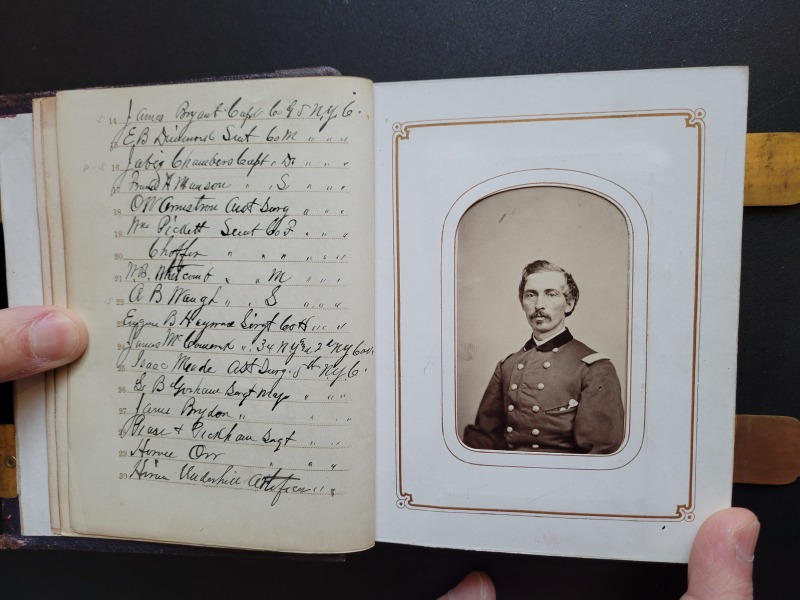 14 James Bryant Capt Co G 5 N.Y. C.
15 E B Dimmond Lieut Co M " " "
16 Jabez Chambers Capt " D " " "
17 Frank H Munson " " S " " "
18 O W Armstron Asst Surg " " "
19 Wm Pickett Lieut Co F " "
20 Choffer " " " " "
21 W.B. Whitcomb " " M " " "
22 A B Waugh " " S " " "
23 Eugene B Hayward Sergt Co H " "
24 James Mc " 34 N Y 2d N Y Cav
25 Isaac Meade Ast Surg. 5th N.Y. C.
26 B Gorham Sergt Major " "
27 James Brydon " " "
28 & Pickham Sergt " "
29 Horace Orr " " "
30 Hiram Vanderhill Artificer " "